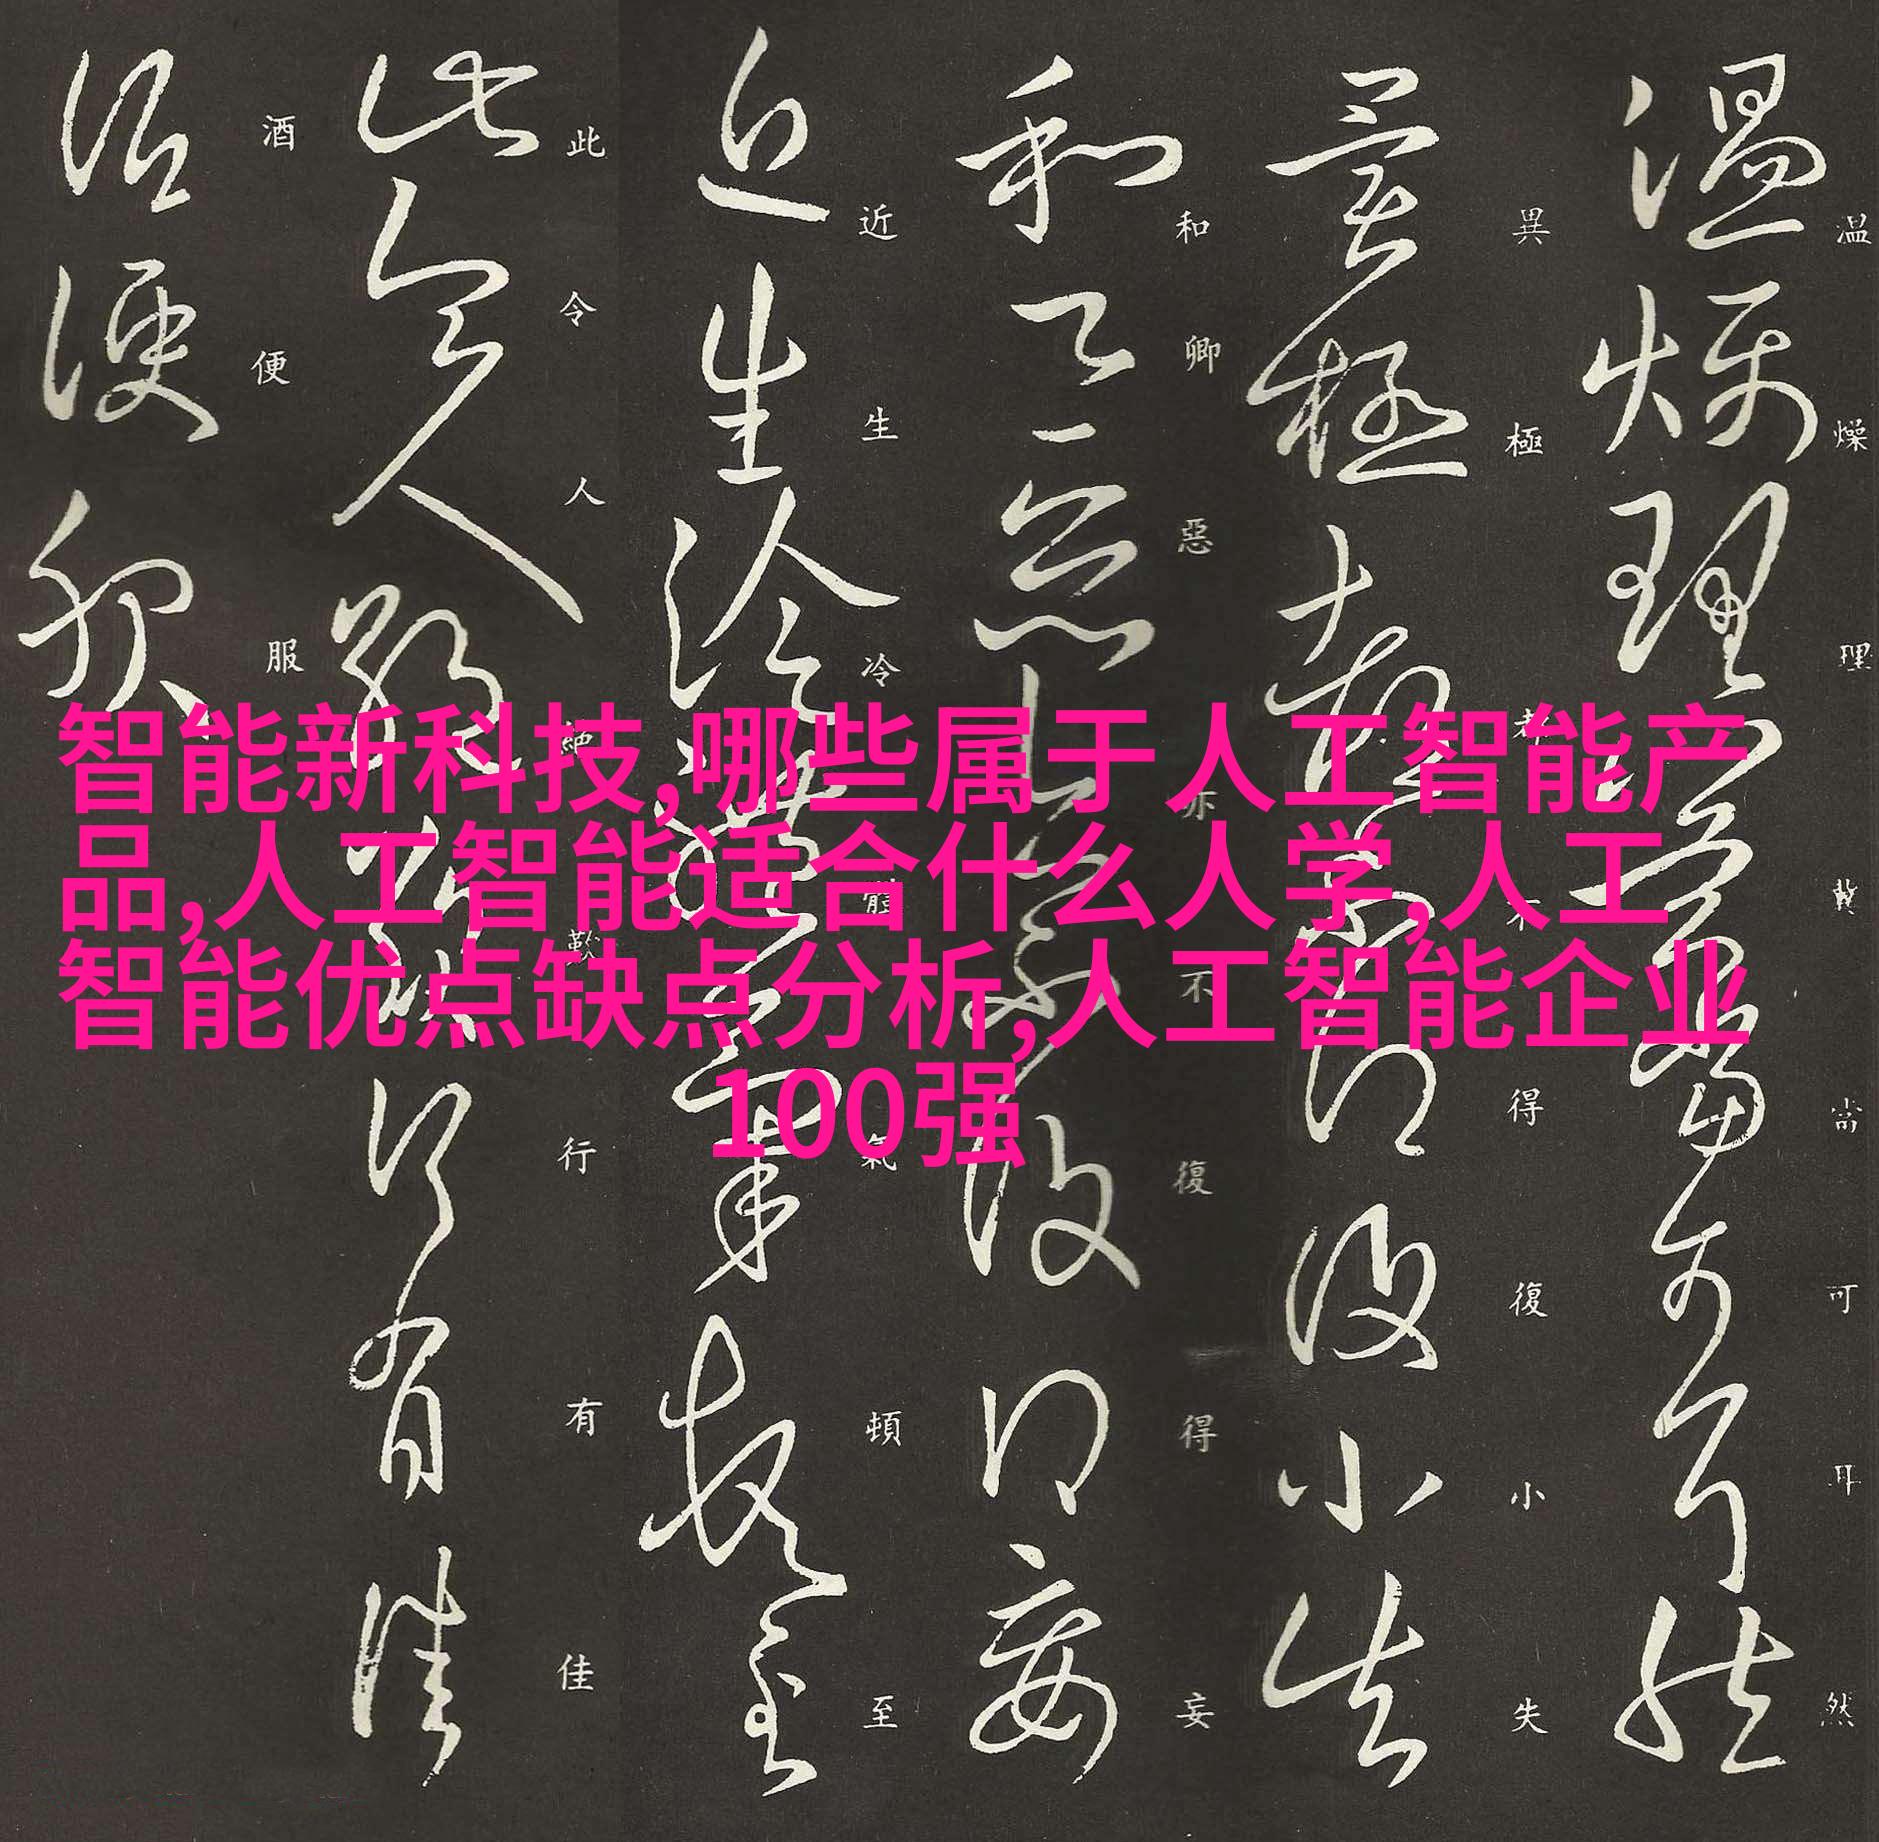 温燥理冀當可耳然
異極都不得復小失
和卿惡亦不復得妄
近生冷體氣頓至
此令人絶歎行有佳
酒便服
智能新科技,哪些属于人工智能产
品,人工智能适合什么人学,人工
智能优点缺点分析,人工智能企业
100强